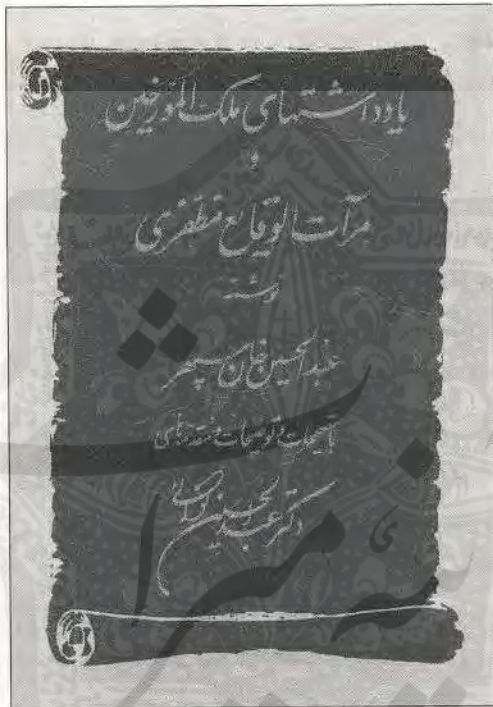 یادداشتهای ملک المورخین
و
مرآت الوقایع مظفری
نوشته
عبدالحسین خان سپهر
با تصحیحات و توضیحات و مقدمه‌های
دکتر عبدالحسین نوائی